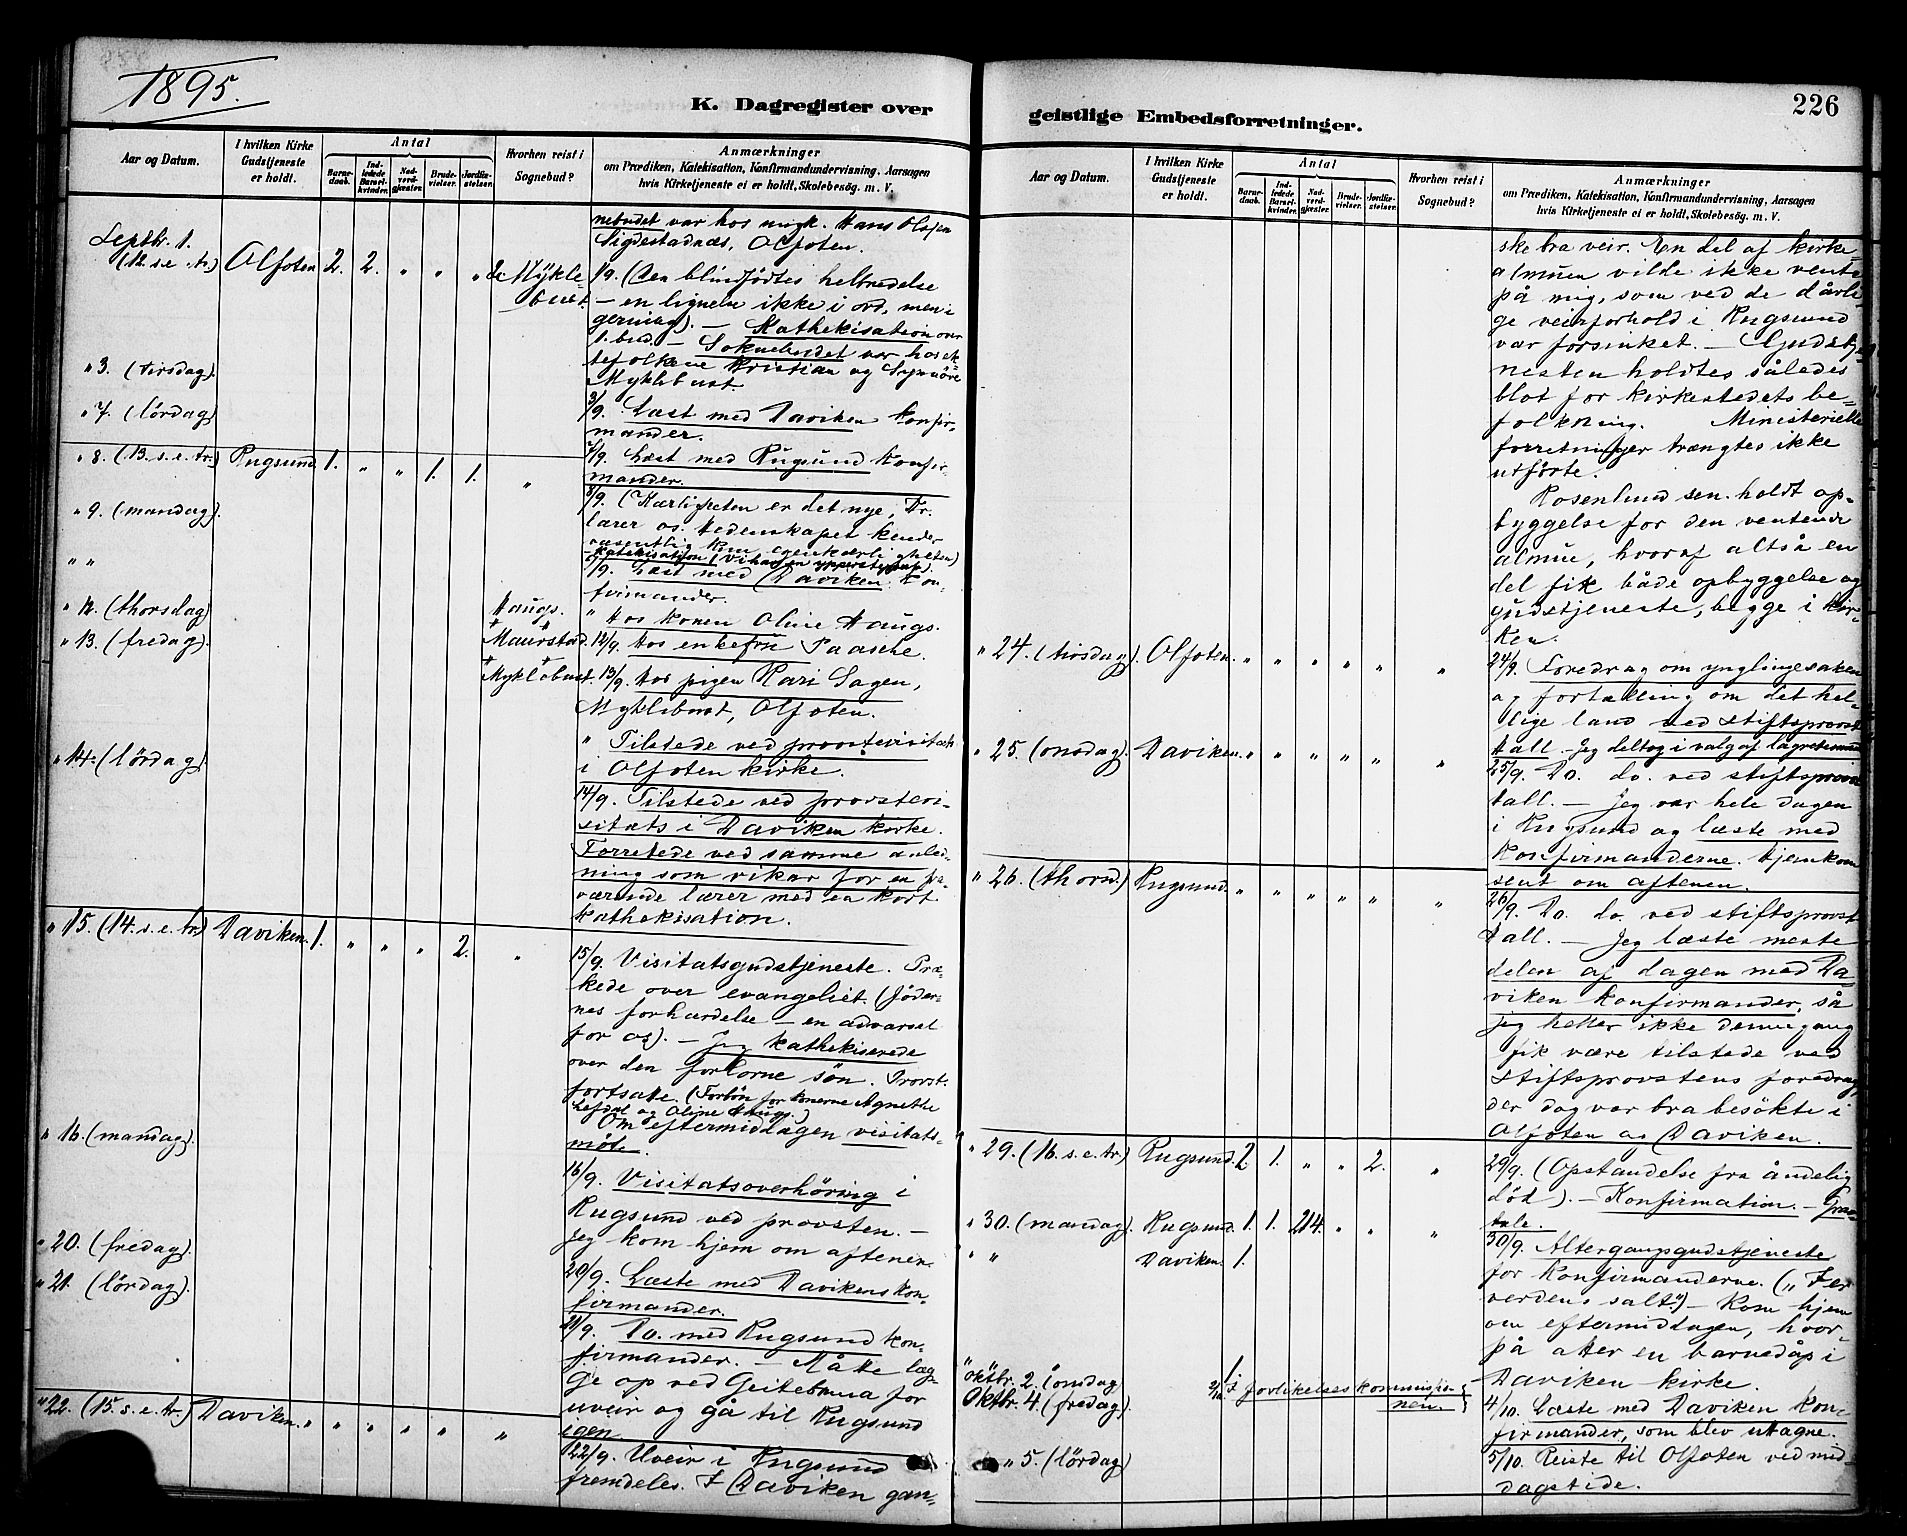 1895.
K. Dagregister over
Aar og Datum.
I hvilken Kirke
Gudstjeneste
er holdt.
Antal
Barne-
daab.
Ind-
ledede
Barsel-
kvinder.
Nad-
verd-
gjæster.
Brude-
vielser.
Jordfæ-
stelser.
Hvorhen reist i
Sognebud?
Anmærkninger
om Prædiken, Katekisation, Konfirmandundervisning, Aarsagen
hvis Kirketjeneste ei er holdt, Skolebesög. m. V.
nebudet var hos ungk. Hans Olsen
Sigdestadnæs, Olfoten.
Septbr. 1.
(12. s. e. tr.) Olfoten 2. 2. " " " Mykle-
bust.
1/9. (Den blindfödtes helbredelse
– en lignelse ikke i ord, men i
gerning). – Kathekisation over
1. bud. – Soknebudet var hos æk-
tefolkene Kristian og Synnöve
Myklebust.
" 3. (tirsdag).
3/9. Læst med Daviken konfir-
mander.
" 7. (lördag)
7/9. Læst med Rugsund konfir-
mander.
" 8. (13. s. e. tr.) Rugsund. 1. " " 1. 1. "
8/9. (Kærligheten er det nye, Kr.
lærer os. Hedenskapet kender
væsentlig kun egenkærligheten)
– Katekisation
" 9. (mandag).
9/9. Læst med Daviken kon-
firmander.
" " Haugs.
" Hos konen Oline Haugs.
" 12. (thorsdag) Maurstad.
12/9. Hos enkefru Paasche.
" 13. (fredag). Myklebust.
13/9. Hos pigen Kari Sagen,
Myklebust, Olfoten.
" Tilstede ved provstevisitats
i Olfoten kirke.
" 14. (lördag).
14/9. Tilstede ved provstevi-
sitats i Daviken kirke.
Forrettede ved samme anled-
ning som vikar for en fra-
værende lærer med en kort
kathekisation.
" 15. (14. s. e. tr.) Daviken. 1. " " " 2. "
15/9. Visitatsgudstjeneste. Præ-
kede over evangeliet. (Jöder-
nes forhærdelse – en advarsel
for os). – Jeg kathekiserede
over den forlorne sön. Provst.
fortsatte. (Forbön for konerne Agnethe
Lefdal og Oline Haugs.)
Om eftermiddagen visitats-
möte.
" 16. (mandag).
16/9. Visitatsoverhöring i
Rugsund ved provsten. –
Jeg kom hjem om aftenen.
" 20. (fredag).
20/9. Læste med Davikens kon-
firmander.
" 21. (lördag).
21/9. Do. med Rugsund kon-
firmander. – Måtte læg-
ge op ved Geitebrua for
uveir og gå til Rugsund
igen.
" 22. (15. s. e. tr.) Daviken. " " " " " "
22/9. Uveir i Rugsund
fremdeles. I Daviken gan-
geistlige Embedsforretninger.
226
Aar og Datum.
I hvilken Kirke
Gudstjeneste
er holdt.
Antal
Barne-
daab.
Ind-
ledede
Barsel-
kvinder.
Nad-
verd-
gjæster.
Brude-
vielser.
Jordfæ-
stelser.
Hvorhen reist i
Sognebud?
Anmærkninger
om Prædiken, Katekisation, Konfirmandundervisning, Aarsagen
hvis Kirketjeneste ei er holdt, Skolebesög. m. V.
ske bra veir. En del af kirke-
almuen vilde ikke vente
på mig, som ved de dårli-
ge veirforhold i Rugsund
var forsinket. – Gudstje-
nesten holdtes således
blot for kirkestedets be-
folkning. Ministerielle
forretninger trængtes ikke
utförte.
Rosenlund sen. holdt op-
byggelse for den ventende
almue, hvoraf altså en
del fik både opbyggelse og
gudstjeneste, begge i kir-
ken.
" 24. (tirsdag). Olfoten. " " " " " "
24/9. Foredrag om ynglingesaken
og fortælling om det hel-
lige land ved stiftsprovst
Hall. – Jeg deltog i valg af lagretsmænd
" 25. (onsdag). Daviken. " " " " " "
25/9. Do. do. ved stiftsprovst
Hall. – Jeg var hele dagen
i Rugsund og læste med
konfirmanderne. Hjemkom
sent om aftenen.
" 26. (thorsd.) Rugsund. " " " " " "
26/9. Do. do. ved stiftsprovst
Hall. – Jeg læste meste
delen af dagen med Da-
viken konfirmander, så
jeg heller ikke dennegang
fik være tilstede ved
stiftsprovstens foredrag,
der dog var bra besökte i
Olfoten og Daviken.
" 29. (16. s. e. tr.) Rugsund. 2 1. " " 2. "
29/9. (Opstandelse fra åndelig
död). – Konfirmation. –
tale.
" 30. (mandag). Rugsund. 1. 1. 214. " " "
30/9. Altergangsgudstjeneste
for konfirmanderne. („I er
verdens salt") – Kom hjem
om eftermiddagen, hvor-
på atter en barnedåp i
Daviken kirke.
" " Daviken. 1.
Oktbr. 2. (onsdag) 2/10 I forlikelseskommissio-
nen.
Oktbr. 4 (fredag).
4/10. Læste med Daviken kon-
firmander, som blev uttagne.
" 5. (lördag)
5/10. Reiste til Olfoten ved mid-
dagstide.